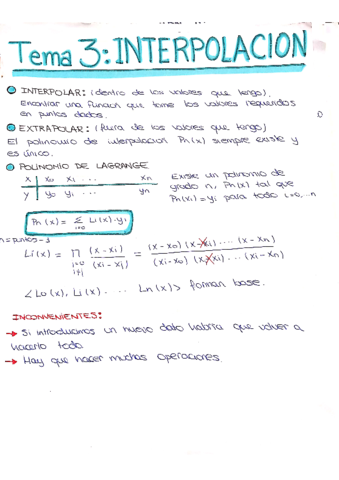 Tema 3: INTERPOLACION
INTERPOLAR: (dentro de los valores que tengo).
Encontrar una función que tome los valores requeridos
en puntos dados.
EXTRAPOLAR: (fuera de los valores que tengo)
El polinomio de interpolación Pn(x) siempre existe y
es único.
POLINOMIO DE LAGRANGE
x | x0 x1 ... xn
y | y0 y1 ... yn
Existe un polinomio de
grado n, Pn(x) tal que
Pn(xi) = yi para todo i=0,...n
Pn(x) = Σ i=0 Li(x)·yi
n=puntos-1
Li(x) = Π j=0 i≠j (x-xj)/(xi-xj) = (x-x0)(x-xi)....(x-xn) / (xi-x0)(xi-xi)...(xi-xn)
<L0(x), L1(x) .... Ln(x)> forman base.
INCONVENIENTES:
→ Si introducimos un nuevo dato habría que volver a
hacerlo todo.
→ Hay que hacer muchas operaciones.